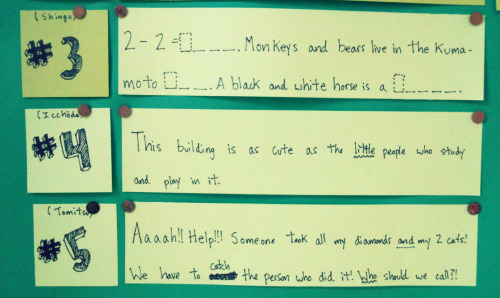 (Shingo)
#3
2 - 2 = □ _ _ _. Monkeys and bears live in the Kuma-
moto □ _ _. A black and white horse is a □ _ _ _ _.
(Icchoda)
#4
This building is as cute as the little people who study
and play in it.
(Tomitsu)
#5
Aaaah!! Help!!! Someone took all my diamonds and my 2 cats!
We have to catch the person who did it! Who should we call?!